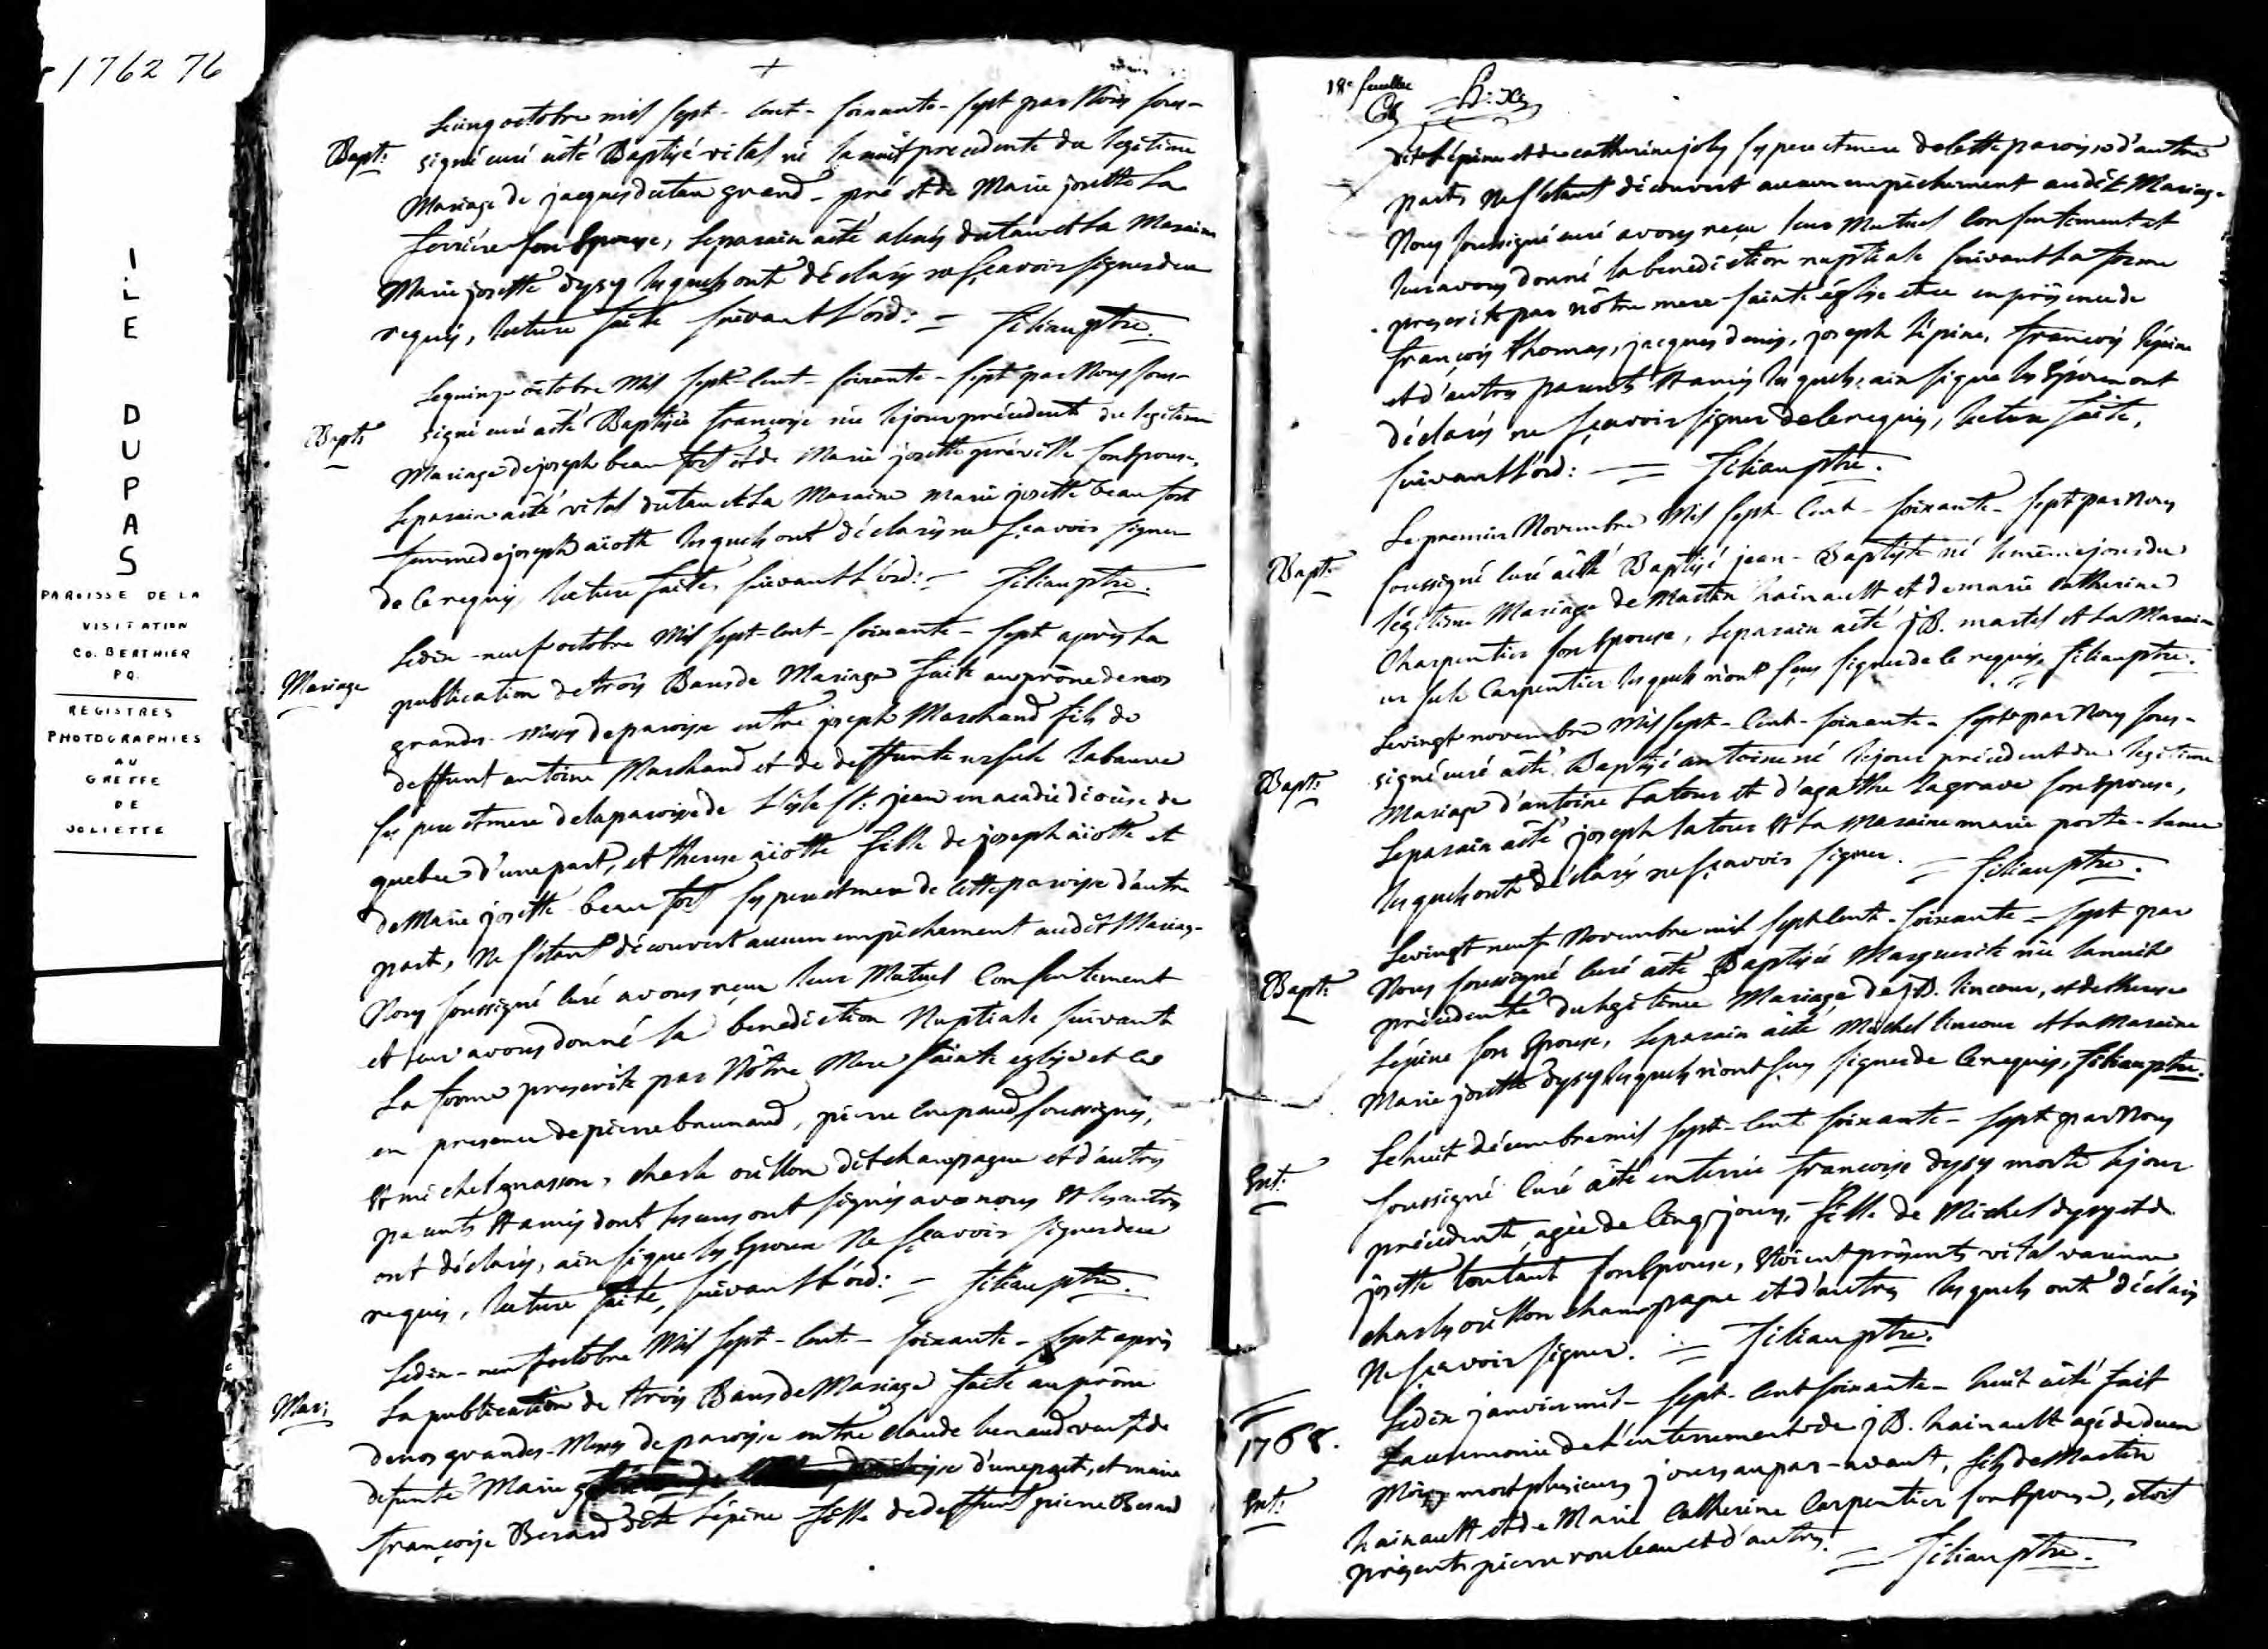 1762 76
ILE DUPAS
PAROISSE DE LA
VISITATION
CO. BERTHIER
PQ.
REGISTRES
PHOTOGRAPHIES
AU
GREFFE
DE
JOLIETTE
+
Le cinq octobre mil sept-cent-soixante-sept par Nous sous-
Bapt: signé curé a été Baptisé vital né la nuit precedente du legitime
Mariage de jacques dutau grand-pré et de Marie josette La
ferriére son Epouse, le parain a été alexis dutau et La Maraine
Marie josette dysy lesquels ont déclarés ne sçavoir signer de ce
requis, lecture faite suivant l'ord: = filiau ptre.
Le quinze octobre Mil sept-cent-soixante-sept par Nous sous-
Bapt: signé curé a été Baptisée françoise née le jour précédent du legitime
Mariage de joseph beaufort et de Marie josette préville son Epouse,
Le parain a été vital dutau et La Maraine marie josette beaufort
femme de joseph aïotte lesquels ont déclarés ne sçavoir signer
de ce requis lecture faite, suivant l'ord: = filiau ptre.
Le dix-neuf octobre Mil sept-cent-soixante-sept après La
Mariage publication de trois Bans de Mariage faite au prône de nos
grandes-messes de paroisse entre joseph Marchand fils de
deffunt antoine Marchand et de deffunte ursule Labauve
ses pere et mere de la paroisse de L'isle St: jean en acadie diocèse de
quebec d'une part, et therese aïotte fille de joseph aïotte et
de Marie josette beaufort ses pere et mere de cette paroisse d'autre
part, Ne s'étant découvert aucun empêchement audit Mariage
Nous soussigné curé avons reçu leur Mutuel Consentement
et leur avons donné la benediction Nuptiale suivant
La forme prescrite par Nôtre Mere sainte eglise et ce
en presence de pierre soussignés,
et michel charle oüllon dit champagne et d'autres
parents et amis dont les uns ont signés avec nous et les autres
ont déclarés, ainsi que les Epoux Ne sçavoir signer de ce
requis, lecture faite, suivant l'ord: = filiau ptre.
Le dix-neuf octobre Mil sept-cent-soixante-sept après
Mar: La publication de trois Bans de Mariage faite au prône
de nos grandes-Messes de paroisse entre claude veuf de
defunte Marie d'une part, et marie
françoise Berard dite Lépine fille de deffunt pierre Berard
18e feuillet
dit Lépine et de catherine joly ses pere et mere de cette paroisse d'autre
part, Ne s'étant découvert aucun empêchement audit Mariage
Nous soussigné curé avons reçu leur Mutuel Consentement et
leur avons donné la benediction nuptiale suivant La forme
prescrite par nôtre mere sainte église et ce en présence de
françois thomas, jacques denis, joseph Lépine, françois lépine
et d'autres parents et amis lesquels, ainsi que les Epoux ont
déclarés ne sçavoir signer de ce requis, lecture faite,
suivant l'ord: = filiau ptre.
Le premier Novembre Mil sept-cent-soixante-sept par Nous
Bapt: soussigné curé a été Baptisé jean-Baptiste né le même jour du
légitime Mariage de Martin hainault et de marie Catherine
Charpentier son Epouse, Le parain a été j.B. martel et La Maraine
ursule Carpentier lesquels n'ont sçus signer de ce requis. filiau ptre.
Le vingt novembre Mil sept-cent-soixante-sept par Nous sous-
Bapt: signé curé a été Baptisé antoine né le jour précédent du legitime
Mariage d'antoine Latour et d'agathe Lagrave son Epouse,
Le parain a été joseph latour et La Maraine marie porte-lance
lesquels ont déclarés ne sçavoir signer. = filiau ptre.
Le vingt neuf Novembre mil sept cent-soixante-sept par
Bapt: Nous soussigné curé a été Baptisée Marguerite née la nuit
précédente du legitime Mariage de j.B. et de therese
Lépine son Epouse, Le parain a été Michel et La Maraine
Marie josette dysy lesquels n'ont sçus signer de ce requis, filiau ptre.
Le huit décembre mil sept-cent soixante-sept par Nous
Ent: soussigné curé a été enterrée françoise dysy morte le jour
précédent, agée de cinq jours, fille de Michel dysy et de
josette toutant son Epouse, étoient présents vital
charles oüllon champagne et d'autres lesquels ont déclarés
Ne sçavoir signer. = filiau ptre.
1768. Le dix janvier mil-sept-cent soixante-huit a été fait
La ceremonie de l'enterrement de j.B. hainault agé de deux
Ent: Mois, mort plusieurs jours auparavant, fils de Martin
hainault et de Marie Catherine Carpentier son Epouse, étoit
présents pierre rouleau et d'autres. = filiau ptre.